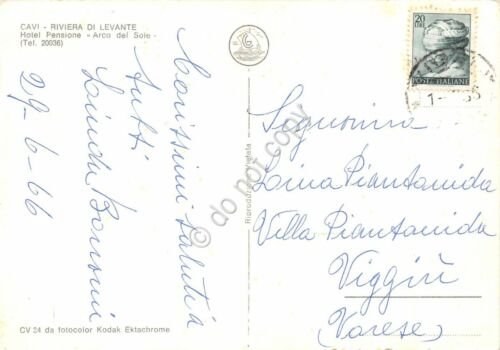 CAVI - RIVIERA DI LEVANTE
Hotel Pensione - Arco del Sole -
(Tel. 20036)
Carissimi saluti a
tutti
Linda
29-6-66
CV 24 da fotocolor Kodak Ektachrome
Riproduzione vietata
do not copy
20
LIRE
POSTE ITALIANE
Signorina
Lina Piantanida
Villa Piantanida
Viggiù
(Varese)